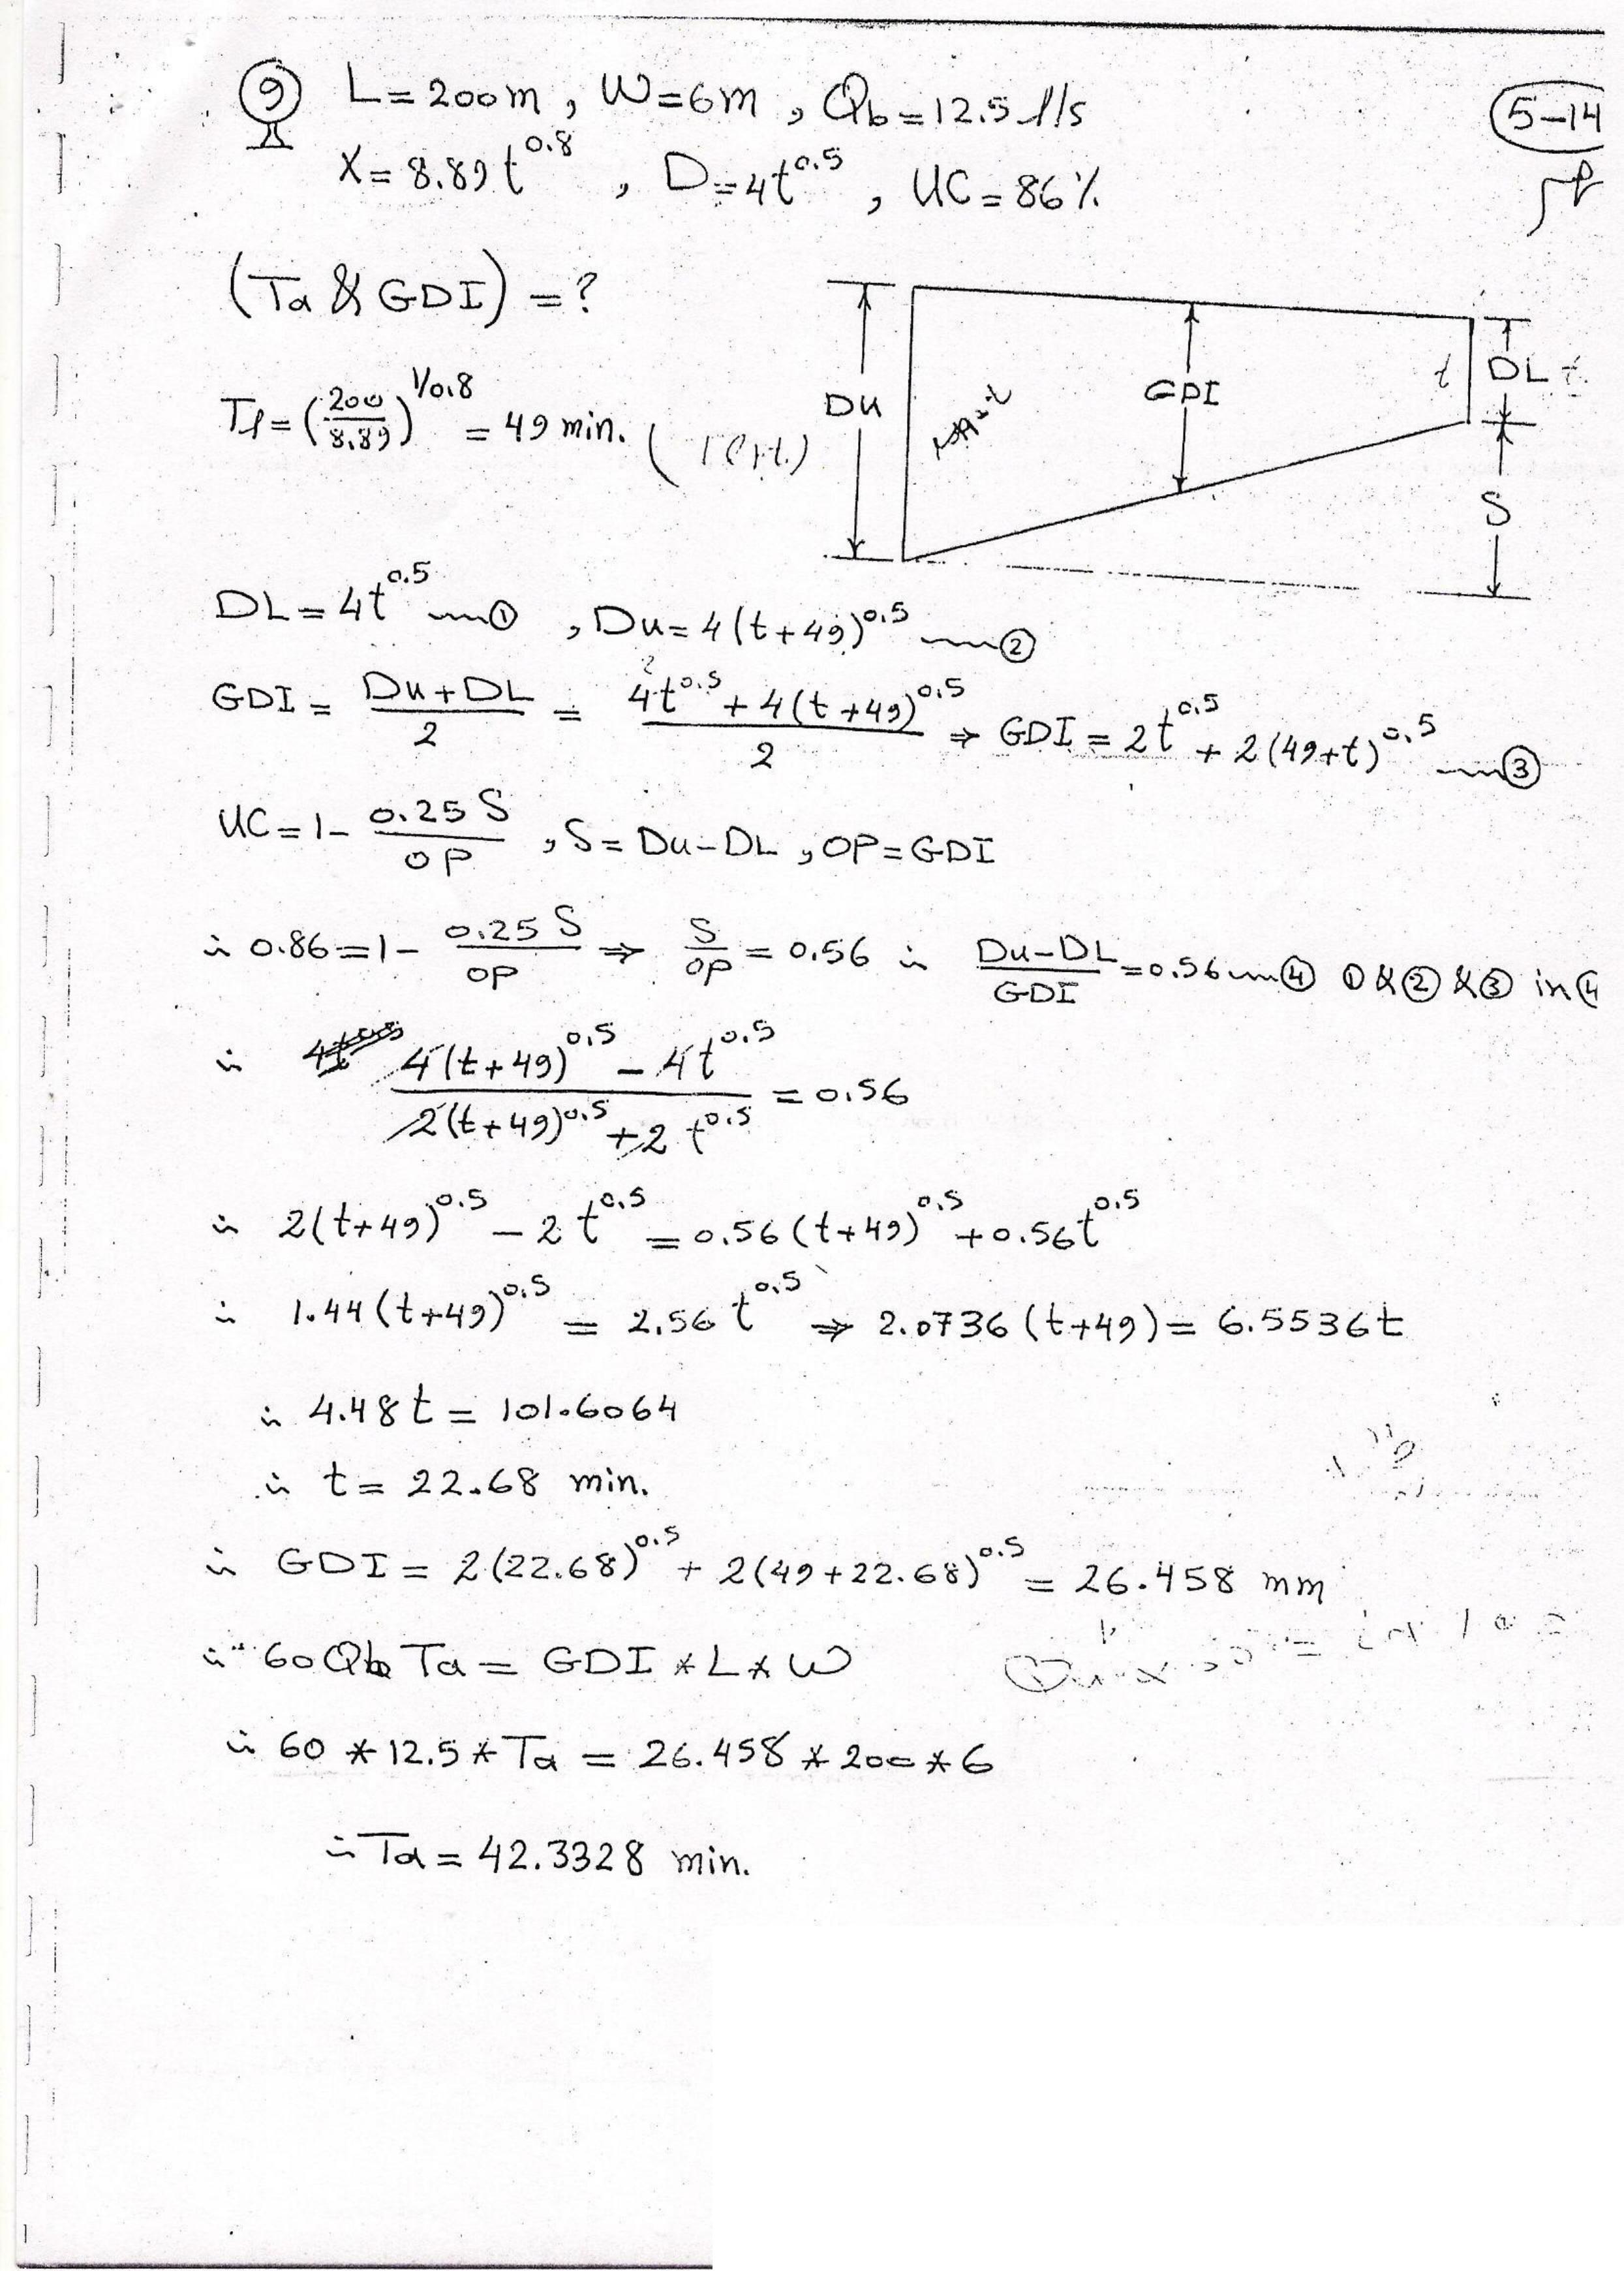 9 L=200m, W=6m, Qb=12.5 l/s
5-14
X=8.89t^0.8, D=4t^0.5, UC=86%
(Ta & GDI)=?
Tl=(200/8.89)^1/0.8 = 49 min.
Du GDI t DL
S
DL=4t^0.5 ① , Du=4(t+49)^0.5 ②
GDI = (Du+DL)/2 = (4t^0.5+4(t+49)^0.5)/2 ⇒ GDI=2t^0.5+2(49+t)^0.5 ③
UC=1-(0.25 S)/OP , S=Du-DL, OP=GDI
∴ 0.86=1-(0.25 S)/OP ⇒ S/OP=0.56 ∴ (Du-DL)/GDI=0.56 ④ ①&②&③ in ④
∴ (4(t+49)^0.5-4t^0.5)/(2(t+49)^0.5+2t^0.5)=0.56
∴ 2(t+49)^0.5-2t^0.5=0.56(t+49)^0.5+0.56t^0.5
∴ 1.44(t+49)^0.5=2.56t^0.5 ⇒ 2.0736(t+49)=6.5536t
∴ 4.48t=101.6064
∴ t=22.68 min.
∴ GDI=2(22.68)^0.5+2(49+22.68)^0.5=26.458 mm
∵ 60 Qb Ta=GDI*L*W
∴ 60*12.5*Ta=26.458*200*6
∴ Ta=42.3328 min.